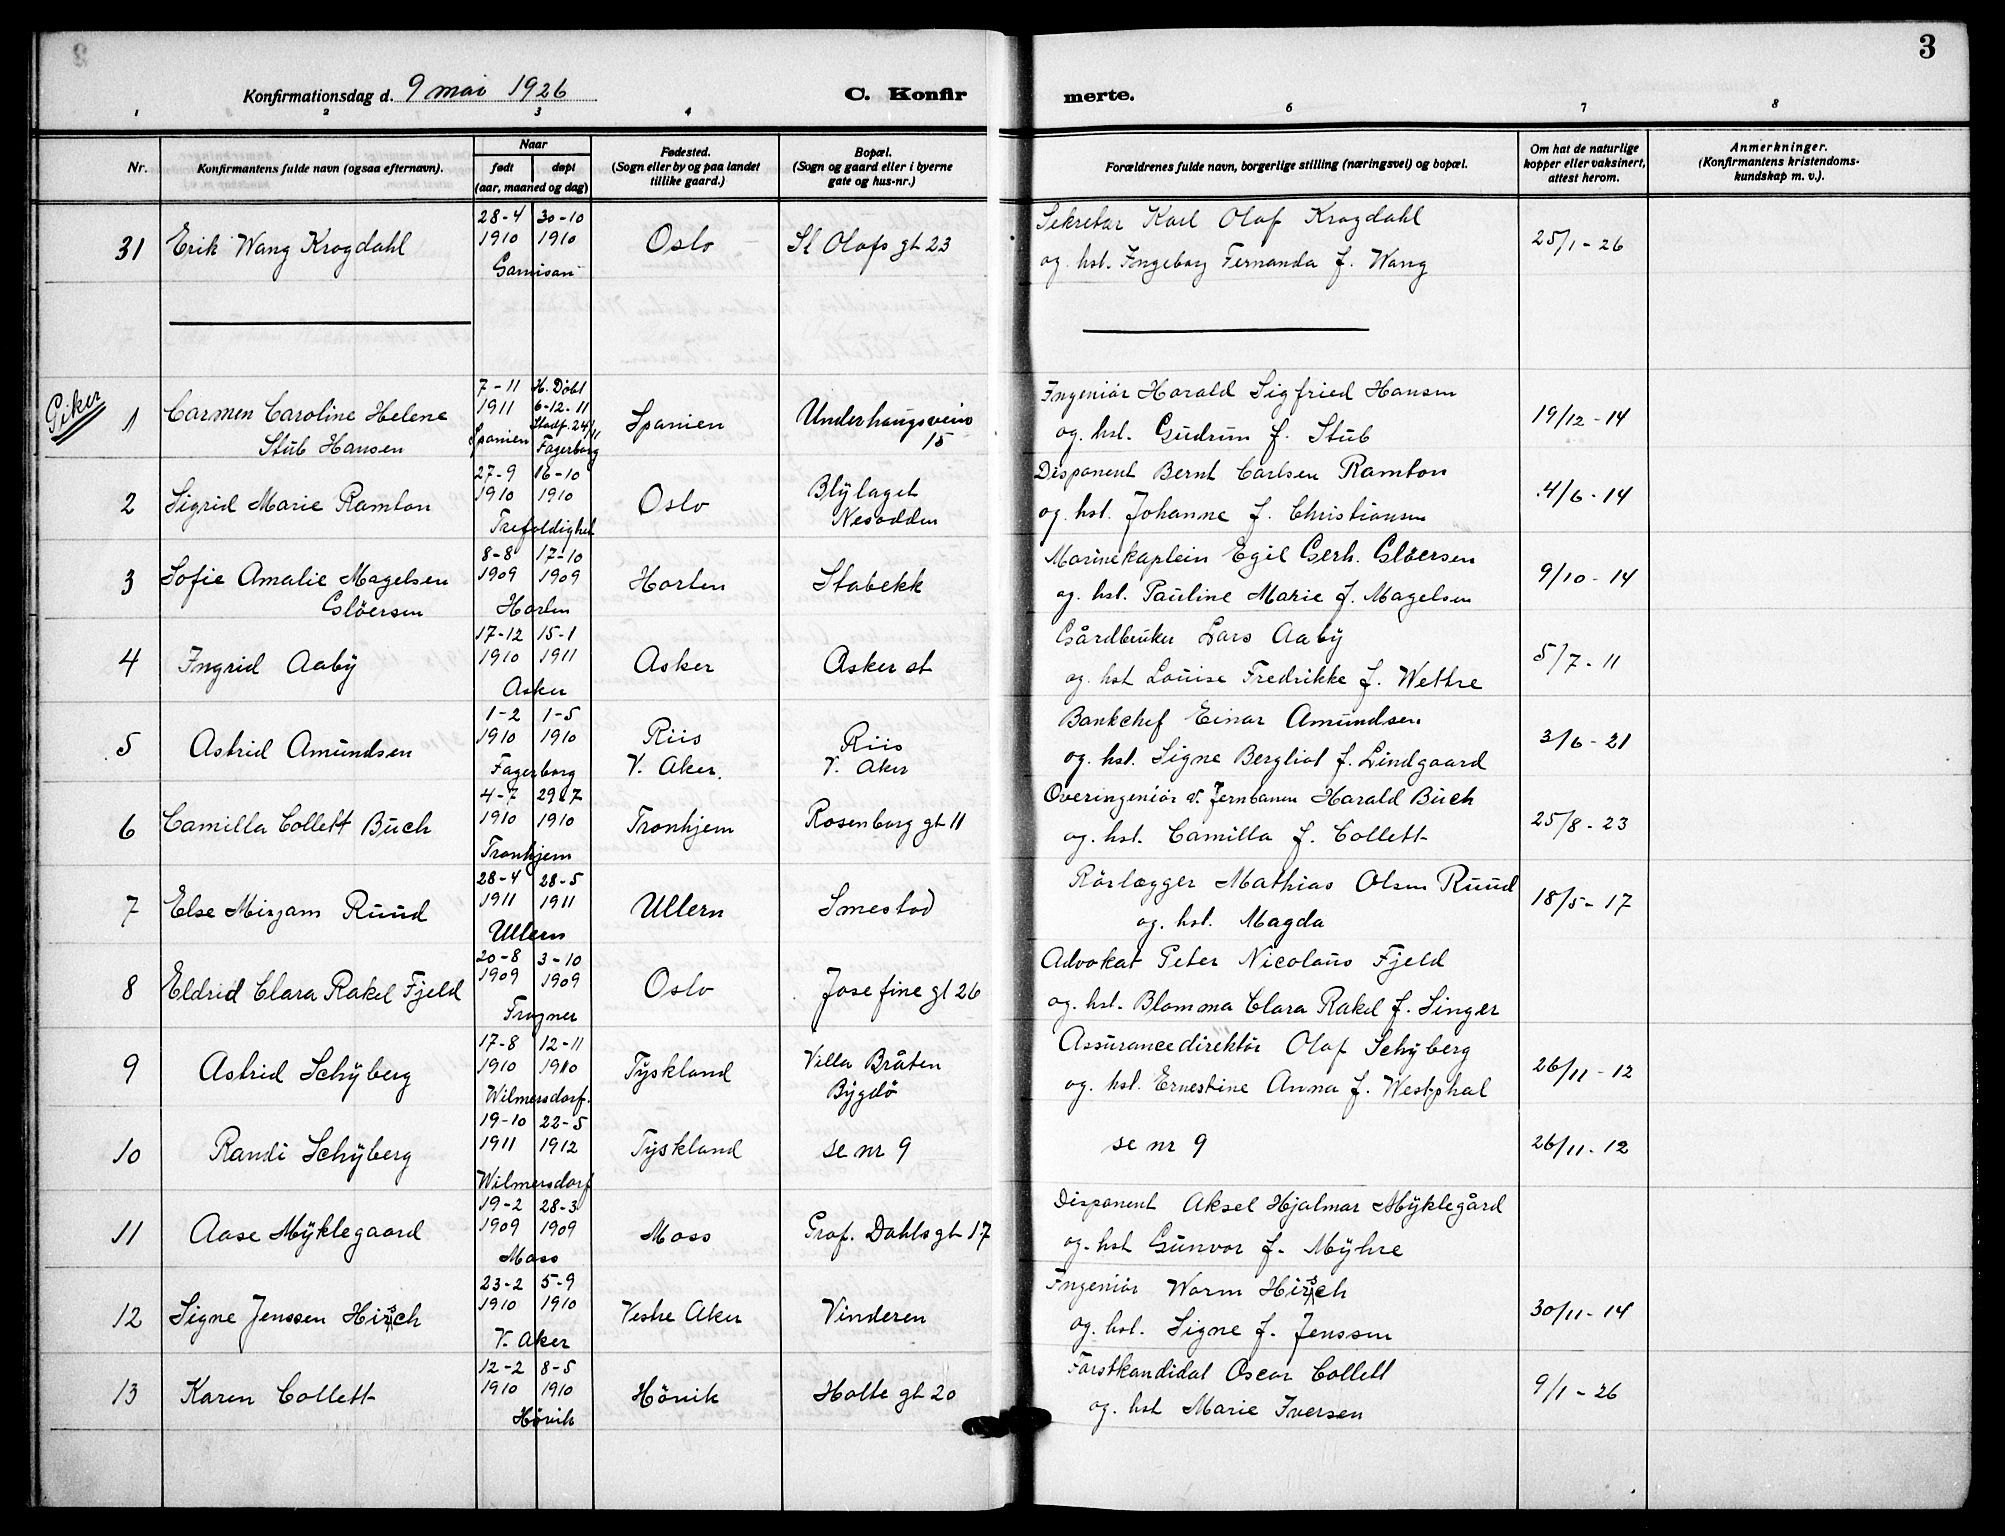 3
Konfirmationsdag d. 9 mai 1926 C. Konfir merte.
1 2 3 4 6 7 8
Nr. Konfirmantens fulde navn (ogsaa efternavn). Naar født døpt (aar, maaned og dag) Fødested. (Sogn eller by og paa landet tillike gaard.) Bopæl. (Sogn og gaard eller i byerne gate og hus-nr.) Forældrenes fulde navn, borgerlige stilling (næringsvei) og bopæl. Om hat de naturlige kopper eller vaksinert, attest herom. Anmerkninger. (Konfirmantens kristendoms-kundskap m. v.).
28-4 30-10 Sekretær Karl Olaf Krogdahl
31 Erik Wang Krogdahl 1910 1910 Oslo St Olafs gt 23 25/1-26
Garnison og. hst. Ingeborg Fernanda f. Wang
Piker
7-11 H. Døbt Ingeniør Harald Sigfried Hansen
1 Carmen Caroline Helene 1911 6-12-11 Spanien Underhaugsveien 19/12-14
Stadf. 24/11 15
Stub Hansen Spanien Fagerborg og. hst. Gudrun f. Stub
27-9 16-10 Disponent Bernt Carlsen Ramton
2 Sigrid Marie Ramton 1910 1910 Oslo Blylaget 4/6-14
Trefoldighet Nesodden og. hst. Johanne f. Christiansen
8-8 17-10 Marinekaptein Egil Gerh. Gløersen
3 Sofie Amalie Magelsen 1909 1909 Horten Stabekk 9/10-14
Gløersen Horten og. hst. Pauline Marie f. Magelsen
17-12 15-1 Gårdbruker Lars Aaby
4 Ingrid Aaby 1910 1911 Asker Asker st 5/7-11
Asker og. hst Louise Fredrikke f. Wettre
1-2 1-5 Riis Riis Bankchef Einar Amundsen
5 Astrid Amundsen 1910 1910 3/6-21
Fagerborg V. Aker. V. Aker og. hst. Signe Bergliot f. Lindgaard
4-7 29-7 Overingeniør v. Jernbanen Harald Buch
6 Camilla Collett Buch 1910 1910 Tronhjem Rosenborg gt 11 25/8-23
Tronhjem og. hst. Camilla f. Collett
28-4 28-5 Rørlægger Mathias Olsen Ruud
7 Else Mirjam Ruud 1911 1911 Ullern Smestad 18/5-17
Ullern og. hst. Magda
20-8 3-10 Advokat Peter Nicolaus Fjeld
8 Eldrid Clara Rakel Fjeld 1909 1909 Oslo Josefine gt 26
Frogner og. hst. Blomma Clara Rakel f. Singer
17-8 12-11 Villa Bråten Assurancedirektør Olaf Schyberg
9 Astrid Schyberg 1910 1910 Tyskland 26/11-12
Wilmersdorf. Bygdø og. hst. Ernestine Anna f. Westphal
19-10 22-5
10 Randi Schyberg 1911 1912 Tyskland se nr 9 se nr 9 26/11-12
Wilmersdorf
19-2 28-3 Disponent Aksel Hjalmar Myklegård
11 Aase Myklegaard 1909 1909 Moss Prof. Dahls gt 17
Moss og. hst Gunvor f. Myhre
23-2 5-9 Ingeniør Worm Hirsch
12 Signe Jenssen Hirsch 1910 1910 Vestre Aker Vinderen 30/11-14
V. Aker og. hst. Signe f. Jenssen
12-2 8-5 Forstkandidat Oscar Collett
13 Karen Collett 1910 1910 Høvik Holte gt 20 9/1-26
Høvik og. hst Marie Iversen